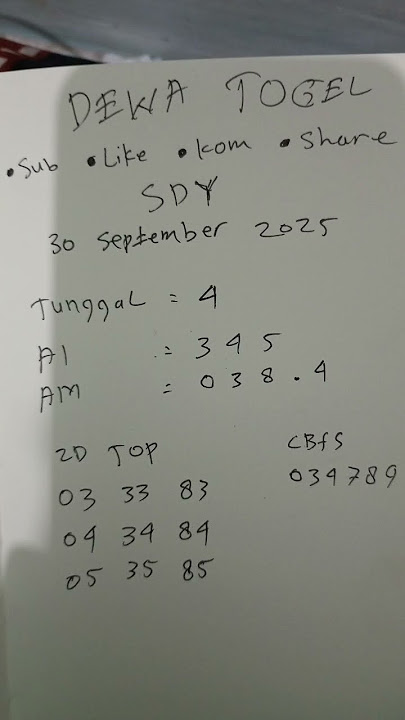 DEWA TOGEL
• Sub • Like • kom • Share
SDY
30 September 2025
Tunggal = 4
AI = 3 4 5
AM = 0 3 8 . 4
2D TOP
03 33 83
04 34 84
05 35 85
CBfS
034789